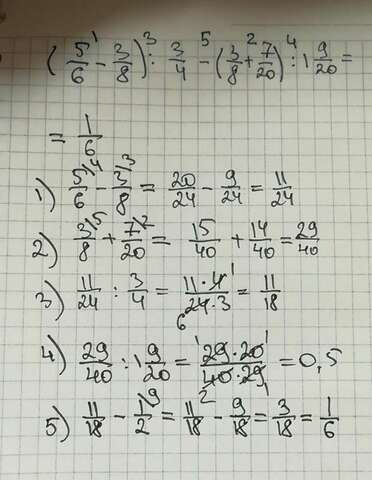 (5/6 ¹- 3/8)³ : 3/4 ⁵- (3/8 ²+ 7/20) ⁴: 1 9/20 =
= 1/6
1) 5/6 ^4 - 3/8 ^3 = 20/24 - 9/24 = 11/24
2) 3/8 ^5 + 7/20 ^2 = 15/40 + 14/40 = 29/40
3) 11/24 : 3/4 = 11·4 ^1/24·3 6 = 11/18
4) 29/40 : 1 9/20 = ^1 29·20 ^1/40·29 2 1 = 0,5
5) 11/18 - 1/2 ^9 = 11/18 - 9/18 = 3/18 = 1/6